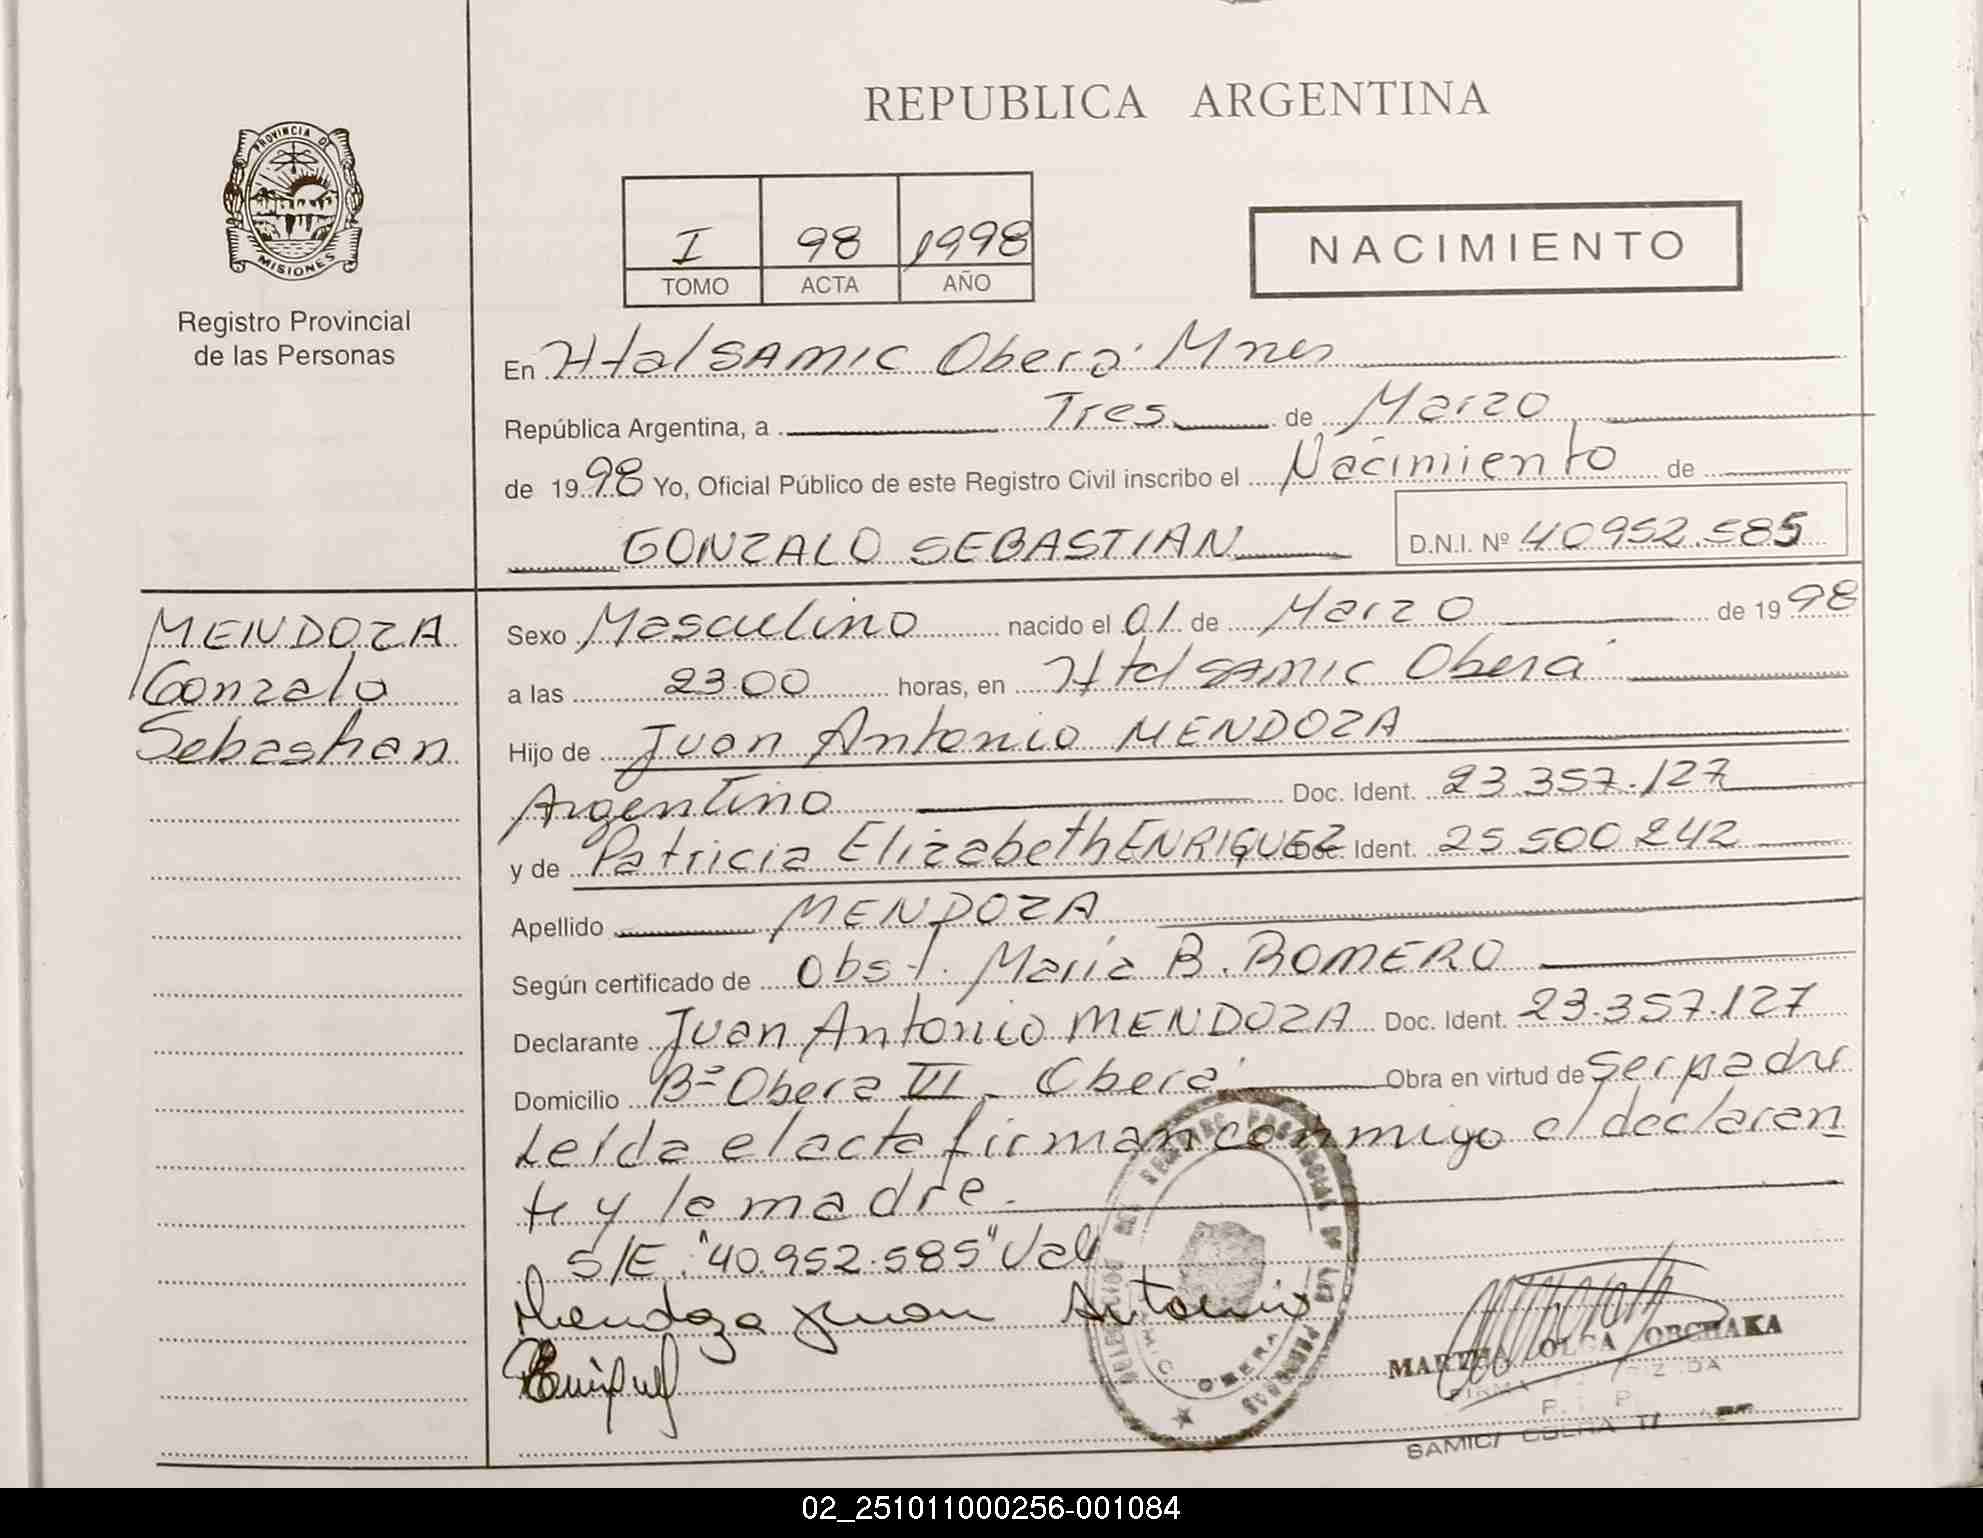 REPUBLICA ARGENTINA
PROVINCIA DE
MISIONES
Registro Provincial
de las Personas
I 98 1998
TOMO ACTA AÑO
NACIMIENTO
En Htal SAMIC Oberá Mnes
República Argentina, a Tres de Marzo
de 1998 Yo, Oficial Público de este Registro Civil inscribo el Nacimiento de
GONZALO SEBASTIAN D.N.I. Nº 40952.585
MENDOZA
Gonzalo
Sebastian
Sexo Masculino nacido el 01 de Marzo de 1998
a las 23.00 horas, en Htal SAMIC Oberá
Hijo de Juan Antonio MENDOZA
Argentino Doc. Ident. 23.357.127
y de Patricia Elizabeth ENRIQUEZ Doc. Ident. 25.500.242
Apellido MENDOZA
Según certificado de Obst. María B. ROMERO
Declarante Juan Antonio MENDOZA Doc. Ident. 23.357.127
Domicilio Bº Obera VI - Oberá Obra en virtud de ser padre
Leída el acta firman conmigo el declaran
te y la madre.
S/E "40.952.585" Vale
Mendoza Juan Antonio
MARTHA OLGA OBCHAKA
FIRMA
SAMIC/ OBERA
OBERA
02_251011000256-001084